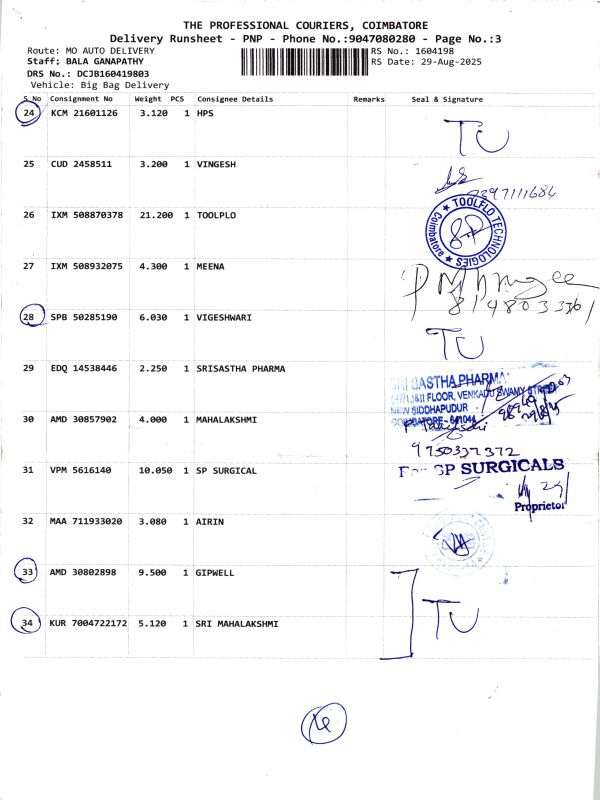 THE PROFESSIONAL COURIERS, COIMBATORE
Delivery Runsheet - PNP - Phone No.:9047080280 - Page No.:3
Route: MO AUTO DELIVERY RS No.: 1604198
Staff: BALA GANAPATHY RS Date: 29-Aug-2025
DRS No.: DCJB160419803
Vehicle: Big Bag Delivery
S No Consignment No Weight PCS Consignee Details Remarks Seal & Signature
24 KCM 21601126 3.120 1 HPS TU
25 CUD 2458511 3.200 1 VINGESH
9397111684
26 IXM 508870378 21.200 1 TOOLPLO
TOOLFLO TECHNOLOGIES Coimbatore
27 IXM 508932075 4.300 1 MEENA
28 SPB 50285190 6.030 1 VIGESHWARI TU
29 EDQ 14538446 2.250 1 SRISASTHA PHARMA
SRI SASTHA PHARMA
FLOOR, VENKADU SWAMY STREET
NEW SIDDHAPUDUR
COIMBATORE - 641044
30 AMD 30857902 4.000 1 MAHALAKSHMI
9750337372
31 VPM 5616140 10.050 1 SP SURGICAL
For SP SURGICALS
Proprietor
32 MAA 711933020 3.080 1 AIRIN
33 AMD 30802898 9.500 1 GIPWELL
34 KUR 7004722172 5.120 1 SRI MAHALAKSHMI TU